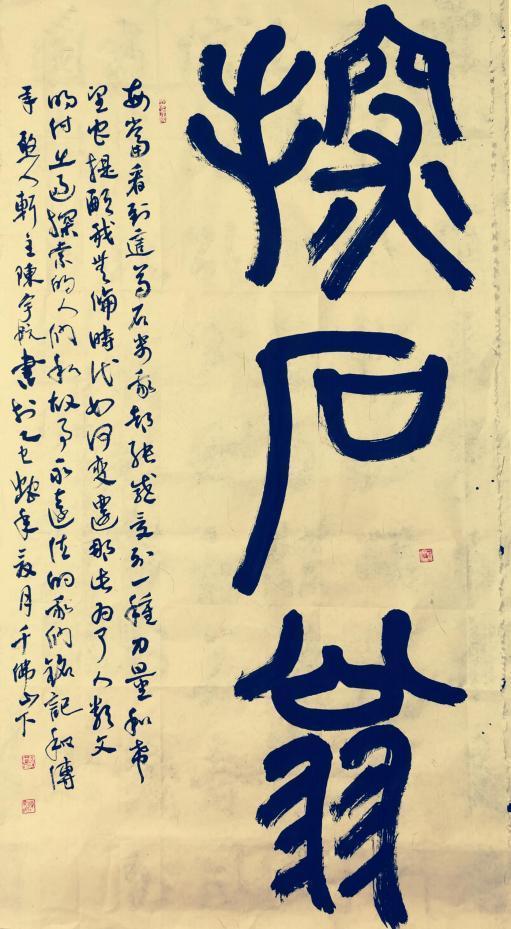 探石翁
每當看到這尊石翁我都能感受到一種力量和希
望它提醒我無論時代如何變遷那些為了人類文
明付出過探索的人們和故事永遠值的我們銘記和傳
承 憨人軒主陳宇航書於乙巳蛇年 月千佛山下